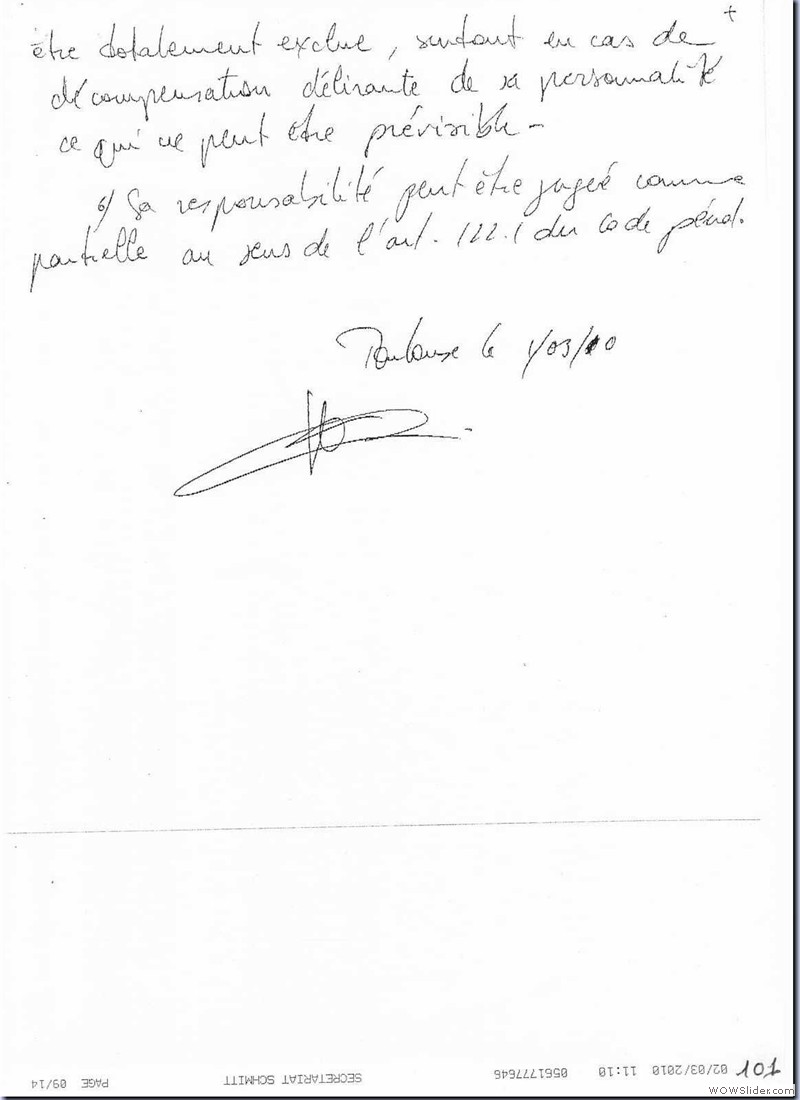 +
être totalement exclue, surtout en cas de
décompensation délirante de sa personnalité
ce qui ne peut être prévisible -
6/ Sa responsabilité peut être jugée comme
partielle au sens de l'art. 122.1 du code pénal.
Toulouse le 1/03/10
101
02/03/2010 11:10 0561777646 SECRETARIAT SCHMITT PAGE 09/14
WOWSlider.com